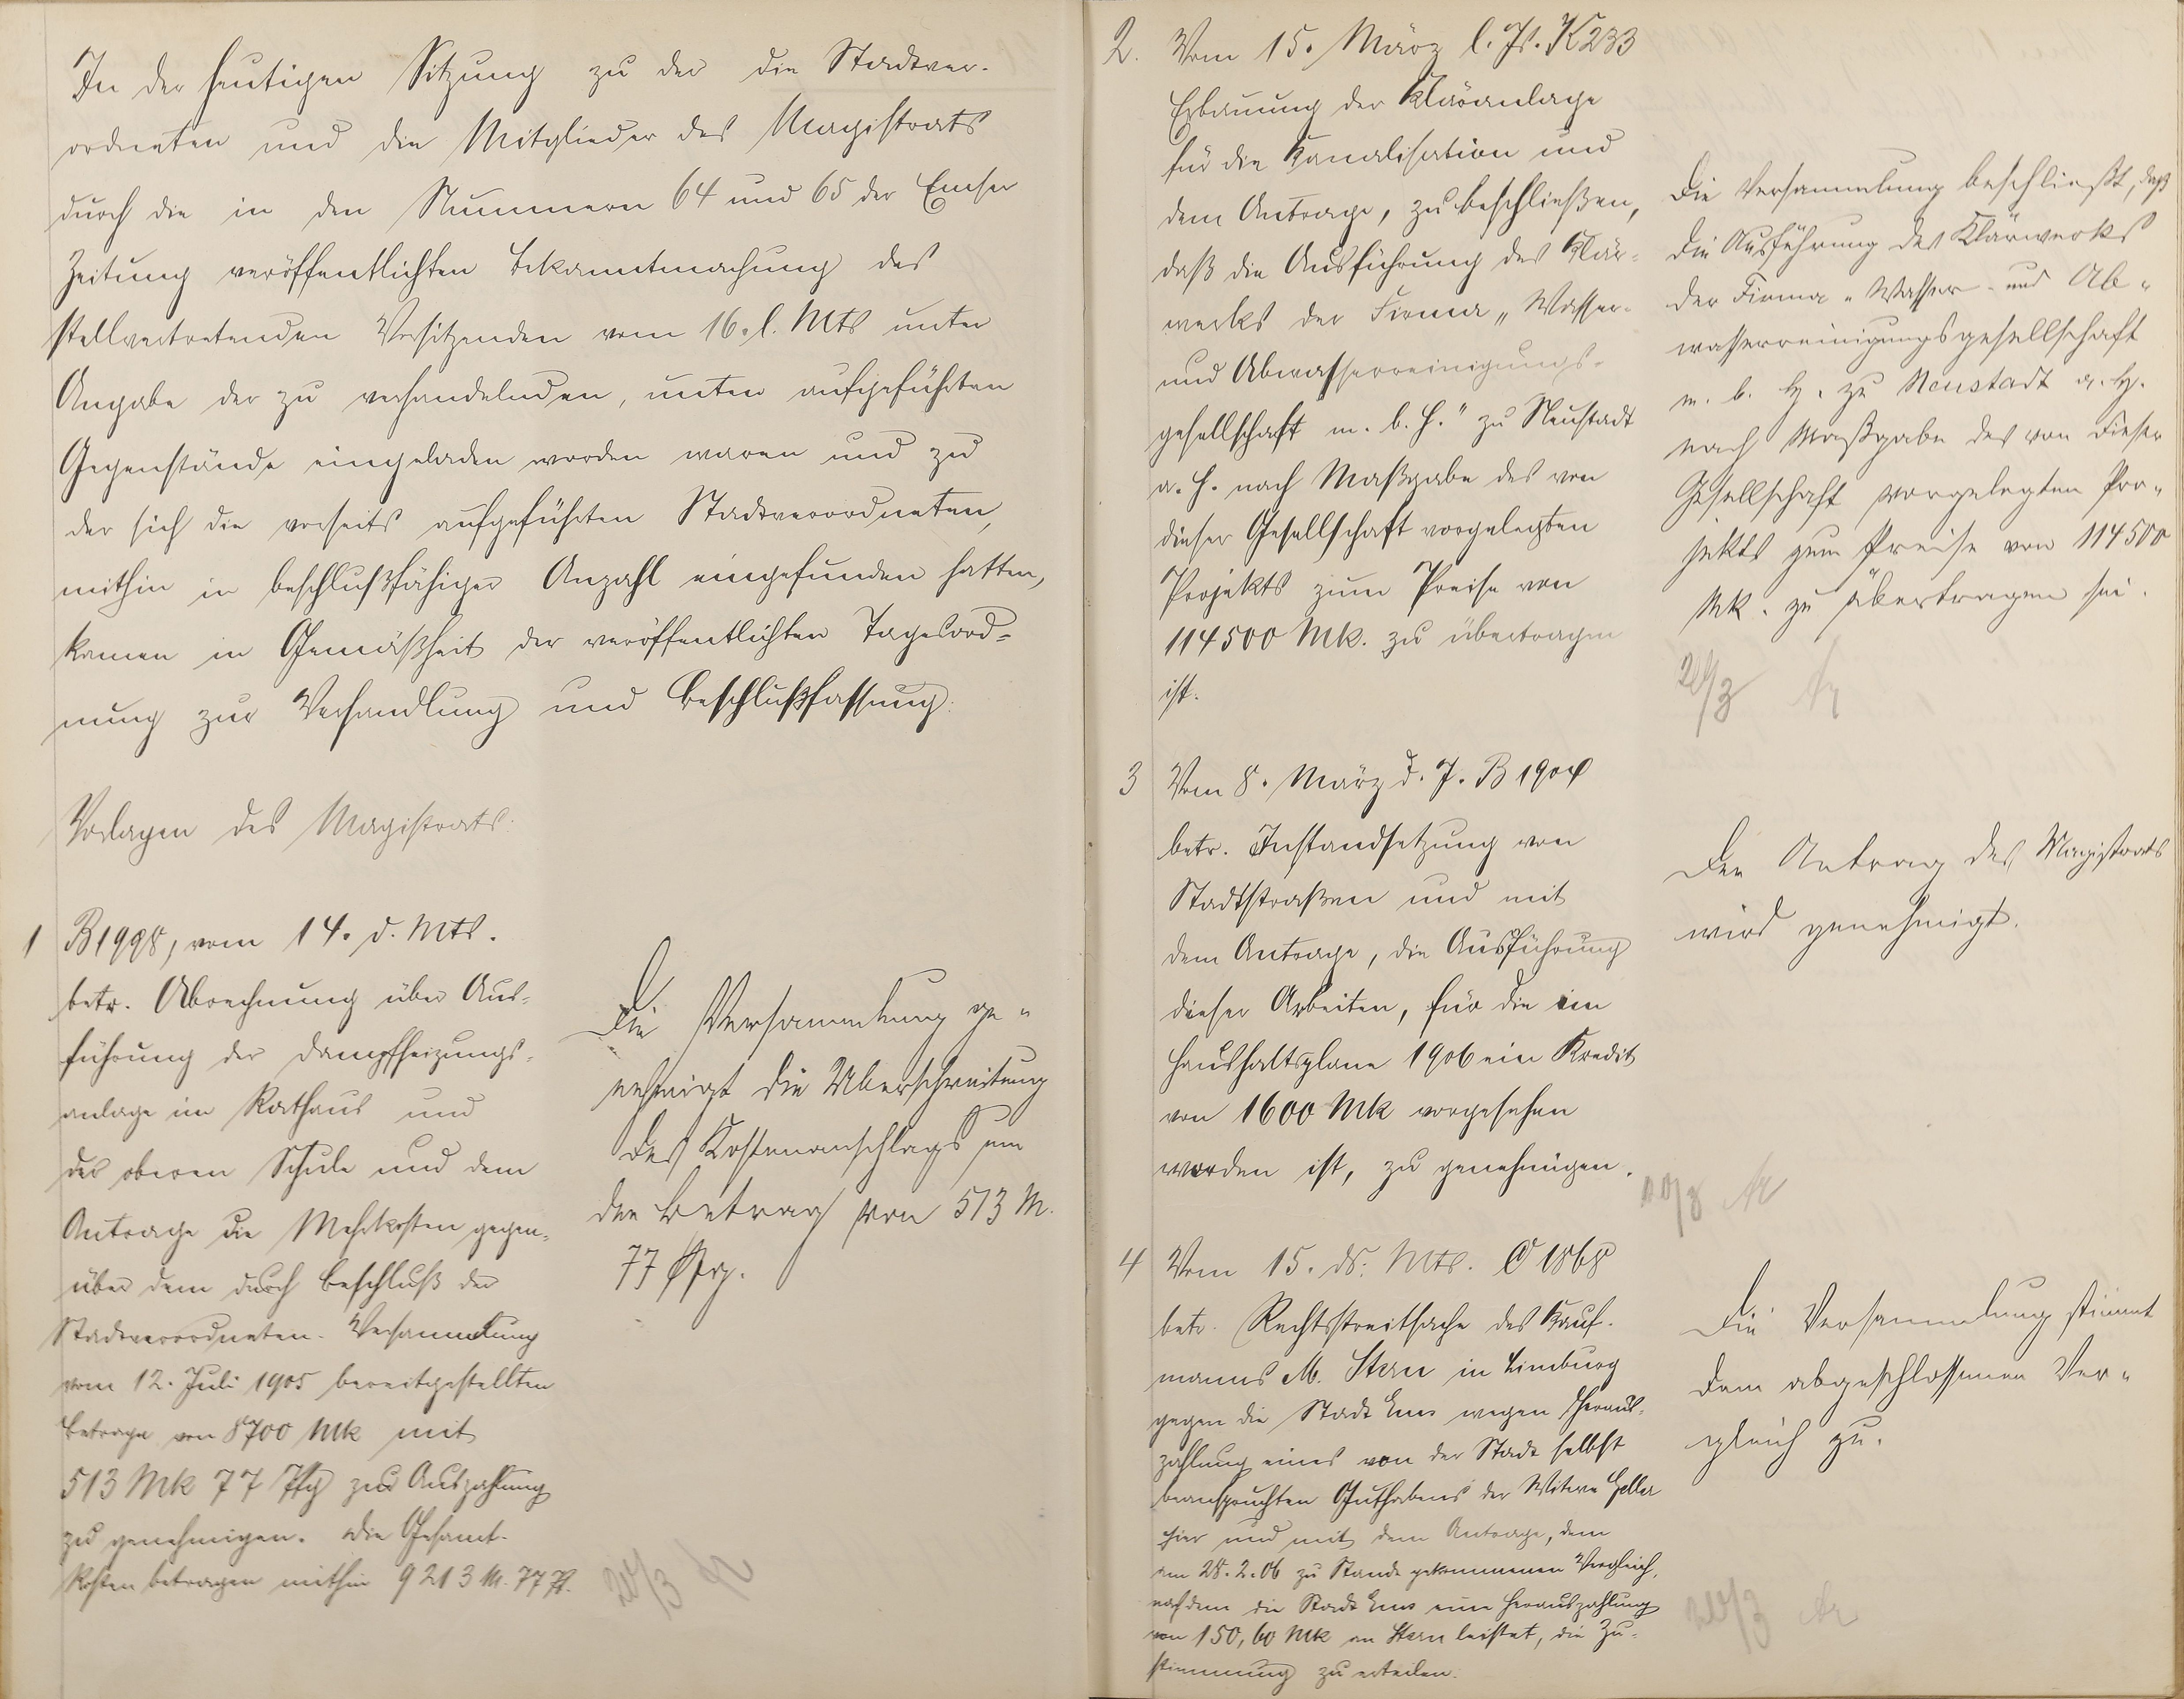 In der heutigen Sitzung zu der die Stadtver-
ordneten und die Mitglieder des Magistrats
durch die in den Nummern 64 und 65 der Emser
Zeitung veröffentlichten Bekanntmachung des
stellvertretenden Vorsitzenden vom 16. l. Mts unter
Angabe der zu verhandelnden, unten aufgeführten
Gegenstände eingeladen worden waren und zu
der sich die vorseits aufgeführten Stadtverordneten,
mithin in beschlußfähiger Anzahl eingefunden hatten,
kamen in Gemäßheit der veröffentlichten Tagesord-
nung zur Verhandlung und Beschlußfassung:
Vorlagen des Magistrats:
1 B 1998, vom 14. d. Mts.
betr. Abrechnung über Aus-
führung der Dampfheizungs-
anlage im Rathaus und
der oberen Schule und dem
Antrage die Mehrkosten gegen-
über dem durch Beschluß der
Stadtverordneten-Versammlung
vom 12. Juli 1905 bereitgestellten
Betrage von 8700 Mk mit
513 Mk 77 Pfg zur Auszahlung
zu genehmigen. Die Gesamt-
kosten betragen mithin 9213 M. 77 Pf.
Die Versammlung ge-
nehmigt die Überschreitung
des Kostenanschlags um
den Betrag von 513 M.
77 Pfg.
20/3
2. Vom 15. März l. Js. K 233
Erbauung der Kläranlage
für die Kanalisation und
dem Antrage, zu beschließen,
daß die Ausführung des Klär-
werks der Firma „Wasser-
und Abwasserreinigungs-
gesellschaft m. b. H." zu Neustadt
a. H. nach Maßgabe des von
dieser Gesellschaft vorgelegten
Projekts zum Preise von
114500 Mk. zu übertragen
ist.
Die Versammlung beschließt, daß
die Ausführung des Klärwerks
der Firma „Wasser- und Ab-
wasserreinigungsgesellschaft
m. b. H. zu Neustadt a. H.
nach Maßgabe des von dieser
Gesellschaft vorgelegten Pro-
jekts zum Preise von 114500
Mk. zu übertragen sei.
20/3
3 Vom 8. März d. J. B 1904
betr. Instandsetzung von
Stadtstraßen und mit
dem Antrage, die Ausführung
dieser Arbeiten, für die im
Haushaltsplane 1906 ein Kredit
von 1600 Mk vorgesehen
worden ist, zu genehmigen.
Der Antrag des Magistrats
wird genehmigt.
20/3
4 Vom 15. ds. Mts. C 1868
betr. Rechtsstreitsache des Kauf-
manns M. Stern in Limburg
gegen die Stadt Ems wegen Heraus-
zahlung eines von der Stadt selbst
beanspruchten Guthabens der Witwe
hier und mit dem Antrage, dem
am 28.2.06 zu Stande gekommenen Vergleich,
nachdem die Stadt Ems eine Herauszahlung
von 150,60 Mk an Stern leistet, die Zu-
stimmung zu erteilen.
Die Versammlung stimmt
dem abgeschlossenen Ver-
gleich zu.
20/3